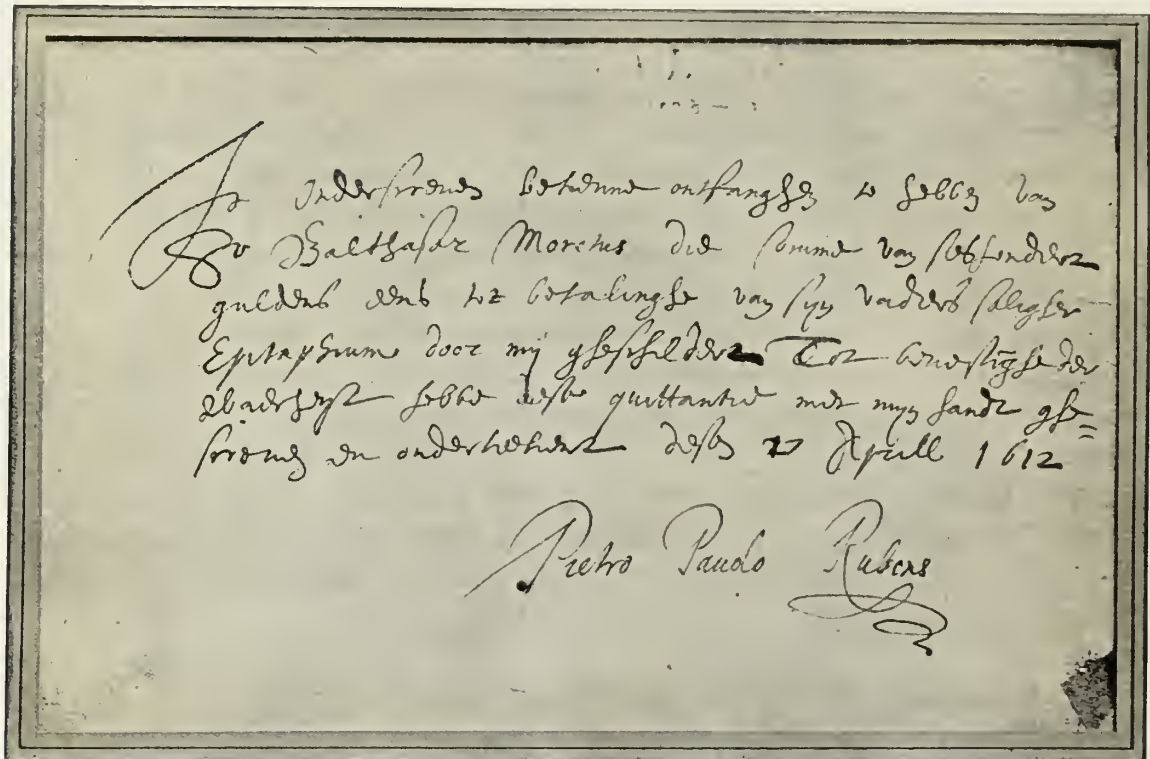 Ic onderscreven bekenne ontfanghen te hebben van
Sr Balthasar Moretus die somme van seshondert
guldens eens tot betalinghe van syn vaders saligher
Epitaphium door mij gheschildert Tot bevestighe der
Waerheyt hebbe dese quittantie met myn handt ghe=
screven en onderteekent desen 27 April 1612
Pietro Pauolo Rubens